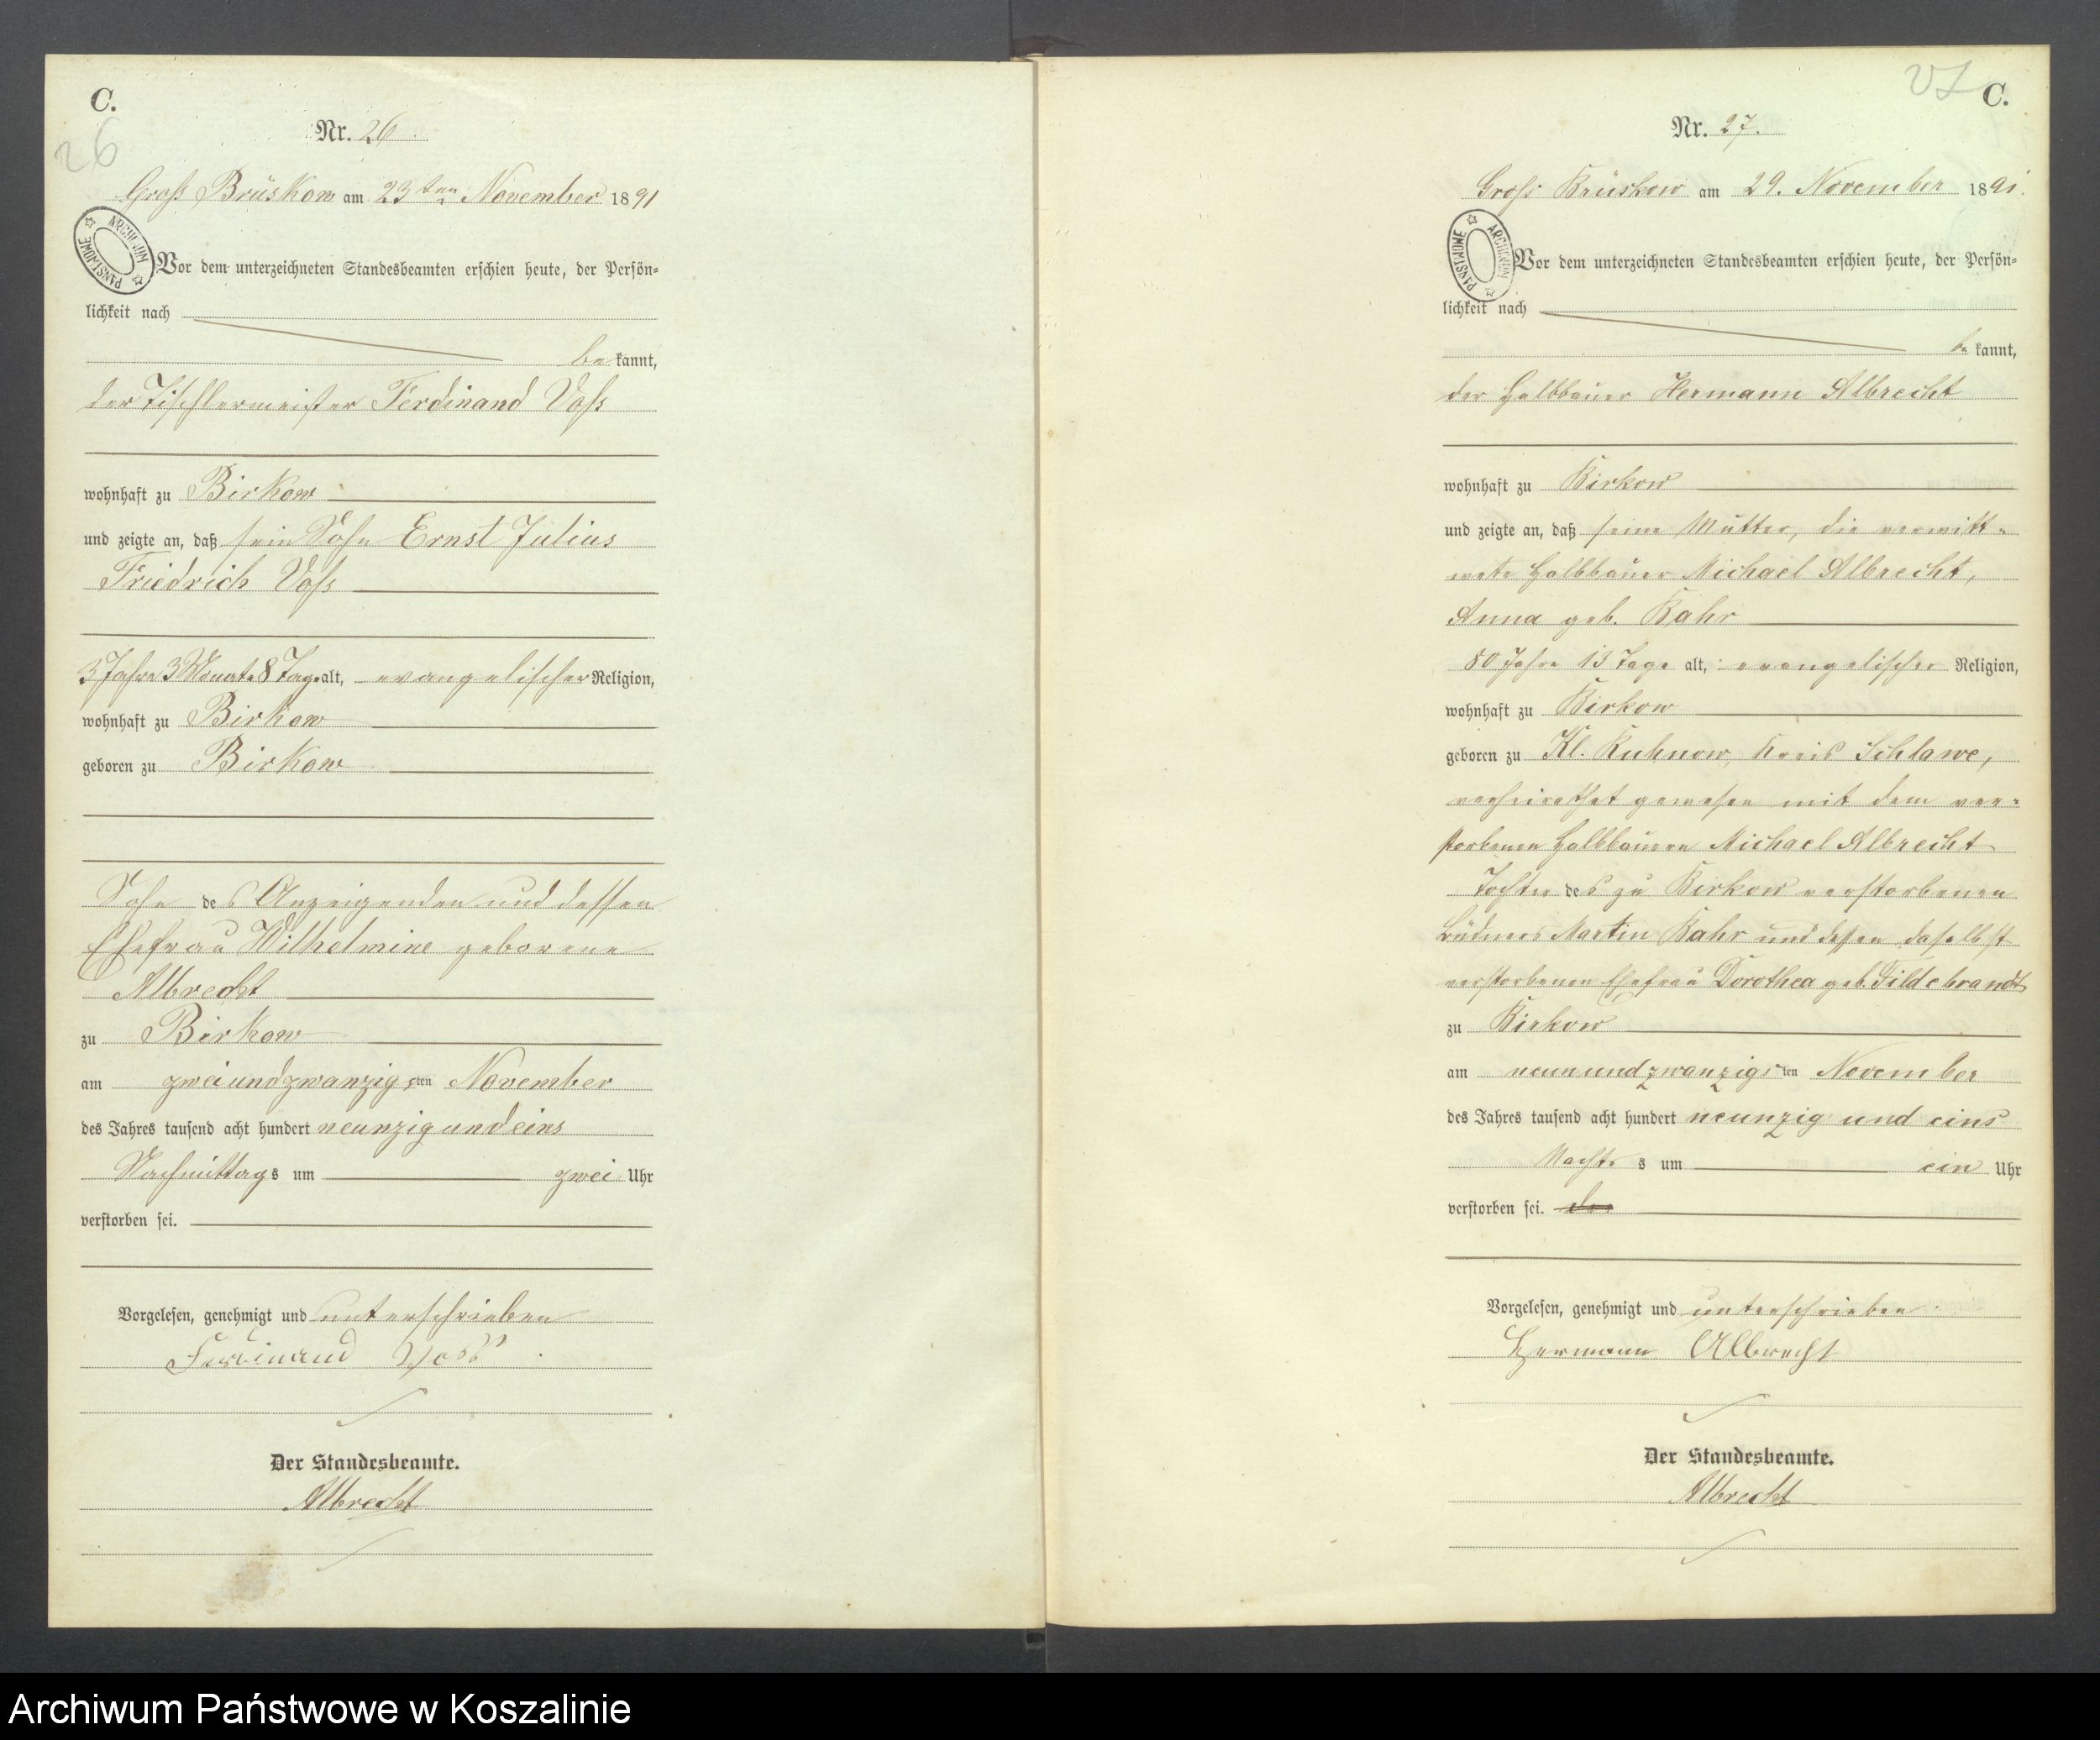 C.
26
Nr. 26.
Groß Brüskow am 23ten November 1891
ARCHIWUM PAŃSTWOWE
Vor dem unterzeichneten Standesbeamten erschien heute, der Persön-
lichkeit nach
bekannt,
der Tischlermeister Ferdinand Voß
wohnhaft zu Birkow
und zeigte an, daß sein Sohn Ernst Julius
Friedrich Voß
3 Jahre 3 Monate 8 Tage alt, evangelischer Religion,
wohnhaft zu Birkow
geboren zu Birkow
Sohn des Anzeigenden und dessen
Ehefrau Wilhelmine geborene
Albrecht
zu Birkow
am zweiundzwanzigsten November
des Jahres tausend acht hundert neunzig und eins
Nachmittags um zwei Uhr
verstorben sei.
Vorgelesen, genehmigt und unterschrieben
Ferdinand Voss
Der Standesbeamte.
Albrecht
C.
Nr. 27.
Groß Brüskow am 29. November 1891.
ARCHIWUM PAŃSTWOWE
Vor dem unterzeichneten Standesbeamten erschien heute, der Persön-
lichkeit nach
bekannt,
der Halbbauer Hermann Albrecht
wohnhaft zu Birkow
und zeigte an, daß seine Mutter, die verwitt-
wete Halbbauer Michael Albrecht,
Anna geb. Bahr
80 Jahre 13 Tage alt, evangelischer Religion,
wohnhaft zu Birkow
geboren zu Kl. Kuhnow, Kreis Schlawe,
verheirathet gewesen mit dem ver-
storbenen Halbbauern Michael Albrecht
Tochter des zu Birkow verstorbenen
Büdners Martin Bahr und dessen daselbst
verstorbenen Ehefrau Dorothea geb. Fildebrandt
zu Birkow
am neunundzwanzigsten November
des Jahres tausend acht hundert neunzig und eins
Nachts um ein Uhr
verstorben sei.
Vorgelesen, genehmigt und unterschrieben.
Hermann Albrecht
Der Standesbeamte.
Albrecht
Archiwum Państwowe w Koszalinie